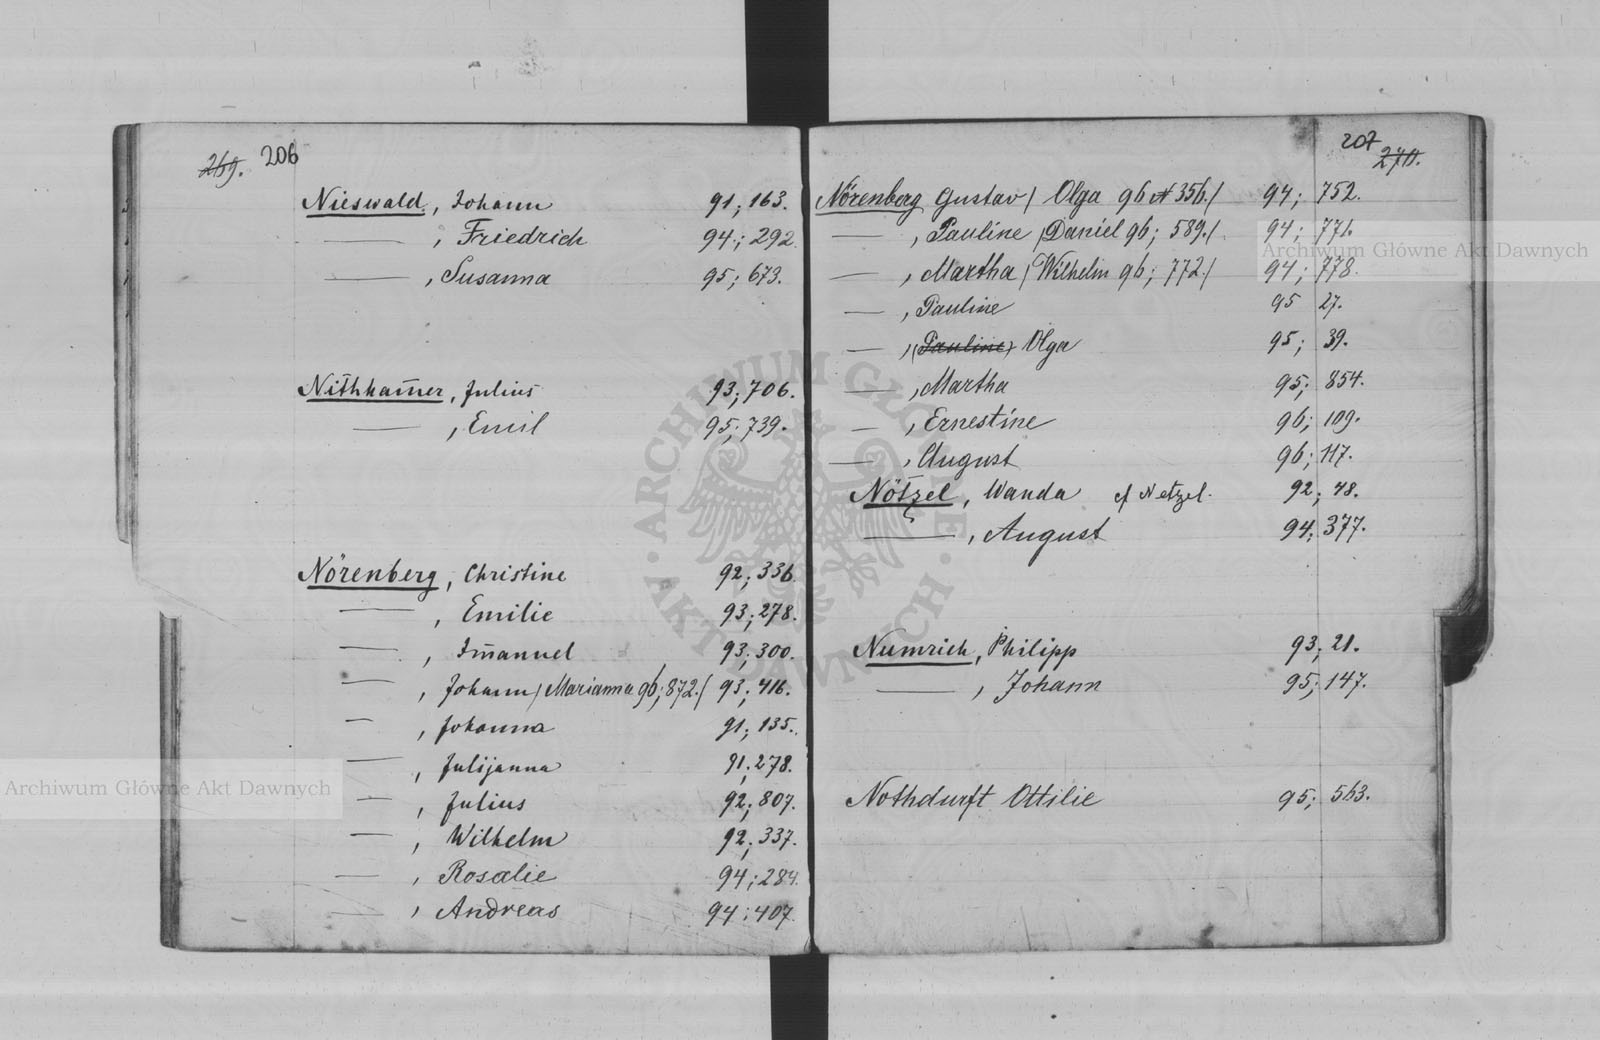 269. 206
Nieswald, Johann 91; 163.
—, Friedrich 94; 292.
—, Susanna 95; 673.
Nithham̄er, Julius 93; 706.
—, Emil 95; 739.
Nörenberg, Christine 92; 336.
—, Emilie 93; 278.
—, Im̄anuel 93; 300.
—, Johann / Marianna 96; 872./ 93; 416.
—, Johanna 91; 135.
—, Julijanna 91; 278.
—, Julius 92; 807.
—, Wilhelm 92; 337.
—, Rosalie 94; 284.
—, Andreas 94; 407.
207
270.
Nörenberg Gustav / Olga 96 356./ 94; 752.
—, Pauline / Daniel 96; 589./ 94; 771.
—, Martha / Wilhelm 96; 772./ 94; 778.
—, Pauline 95 27.
—, (Pauline) Olga 95; 39.
—, Martha 95; 854.
—, Ernestine 96; 109.
—, August 96; 117.
Nötzel, Wanda cf Netzel. 92; 48.
—, August 94; 377.
Numrich, Philipp 93; 21.
—, Johann 95; 147.
Nothdurft Ottilie 95; 563.
Archiwum Główne Akt Dawnych
Archiwum Główne Akt Dawnych
ARCHIWUM GŁÓWNE AKT DAWNYCH